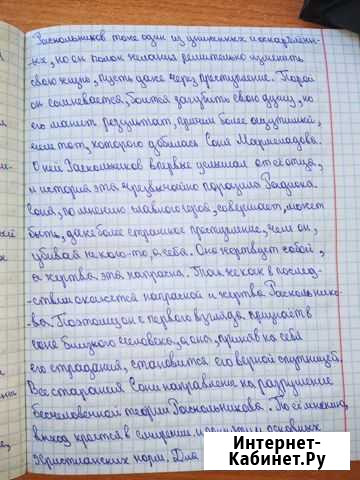 Раскольников тоже один из униженных и оскорблён-
ных, но он полон желания решительно изменить
свою жизнь, пусть даже через преступление. Порой
он сомневается, боится загубить свою душу, но
его манит результат, причем более ощутимый,
чем тот, которого добилась Соня Мармеладова.
О ней Раскольников впервые услышал от её отца,
и история эта чрезвычайно поразила Родиона.
Соня, по мнению главного героя, совершает, может
быть, даже более страшное преступление, чем он,
убивая не кого-то, а себя. Она жертвует собой,
а жертва эта напрасна. Так же как в послед-
ствии окажется напрасной и жертва Раскольнико-
ва. Поэтому он с первого взгляда признает в
Соне близкого человека, а она, приняв на себя
его страдания, становится его верной спутницей.
Все старания Сони направлены на разрушение
бесчеловечной теории Раскольникова. По её мнению,
выход кроется в смирении и принятии основных
Христианских норм. Для
Интернет-
Кабинет.Ру